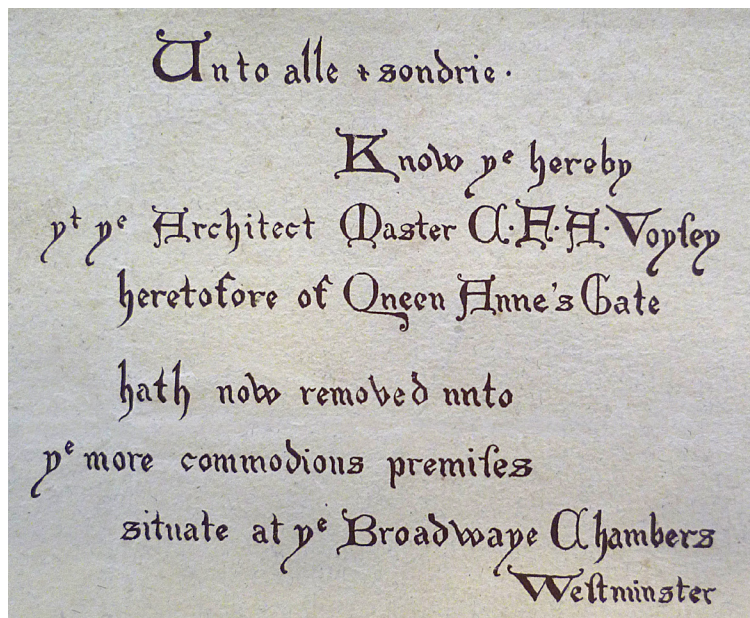 Unto alle & sondrie.
Know ye hereby
yt ye Architect Master C.F.A. Voyſey
heretofore of Queen Anne's Gate
hath now removed unto
ye more commodious premiſes
situate at ye Broadwaye Chambers
Weſtminster